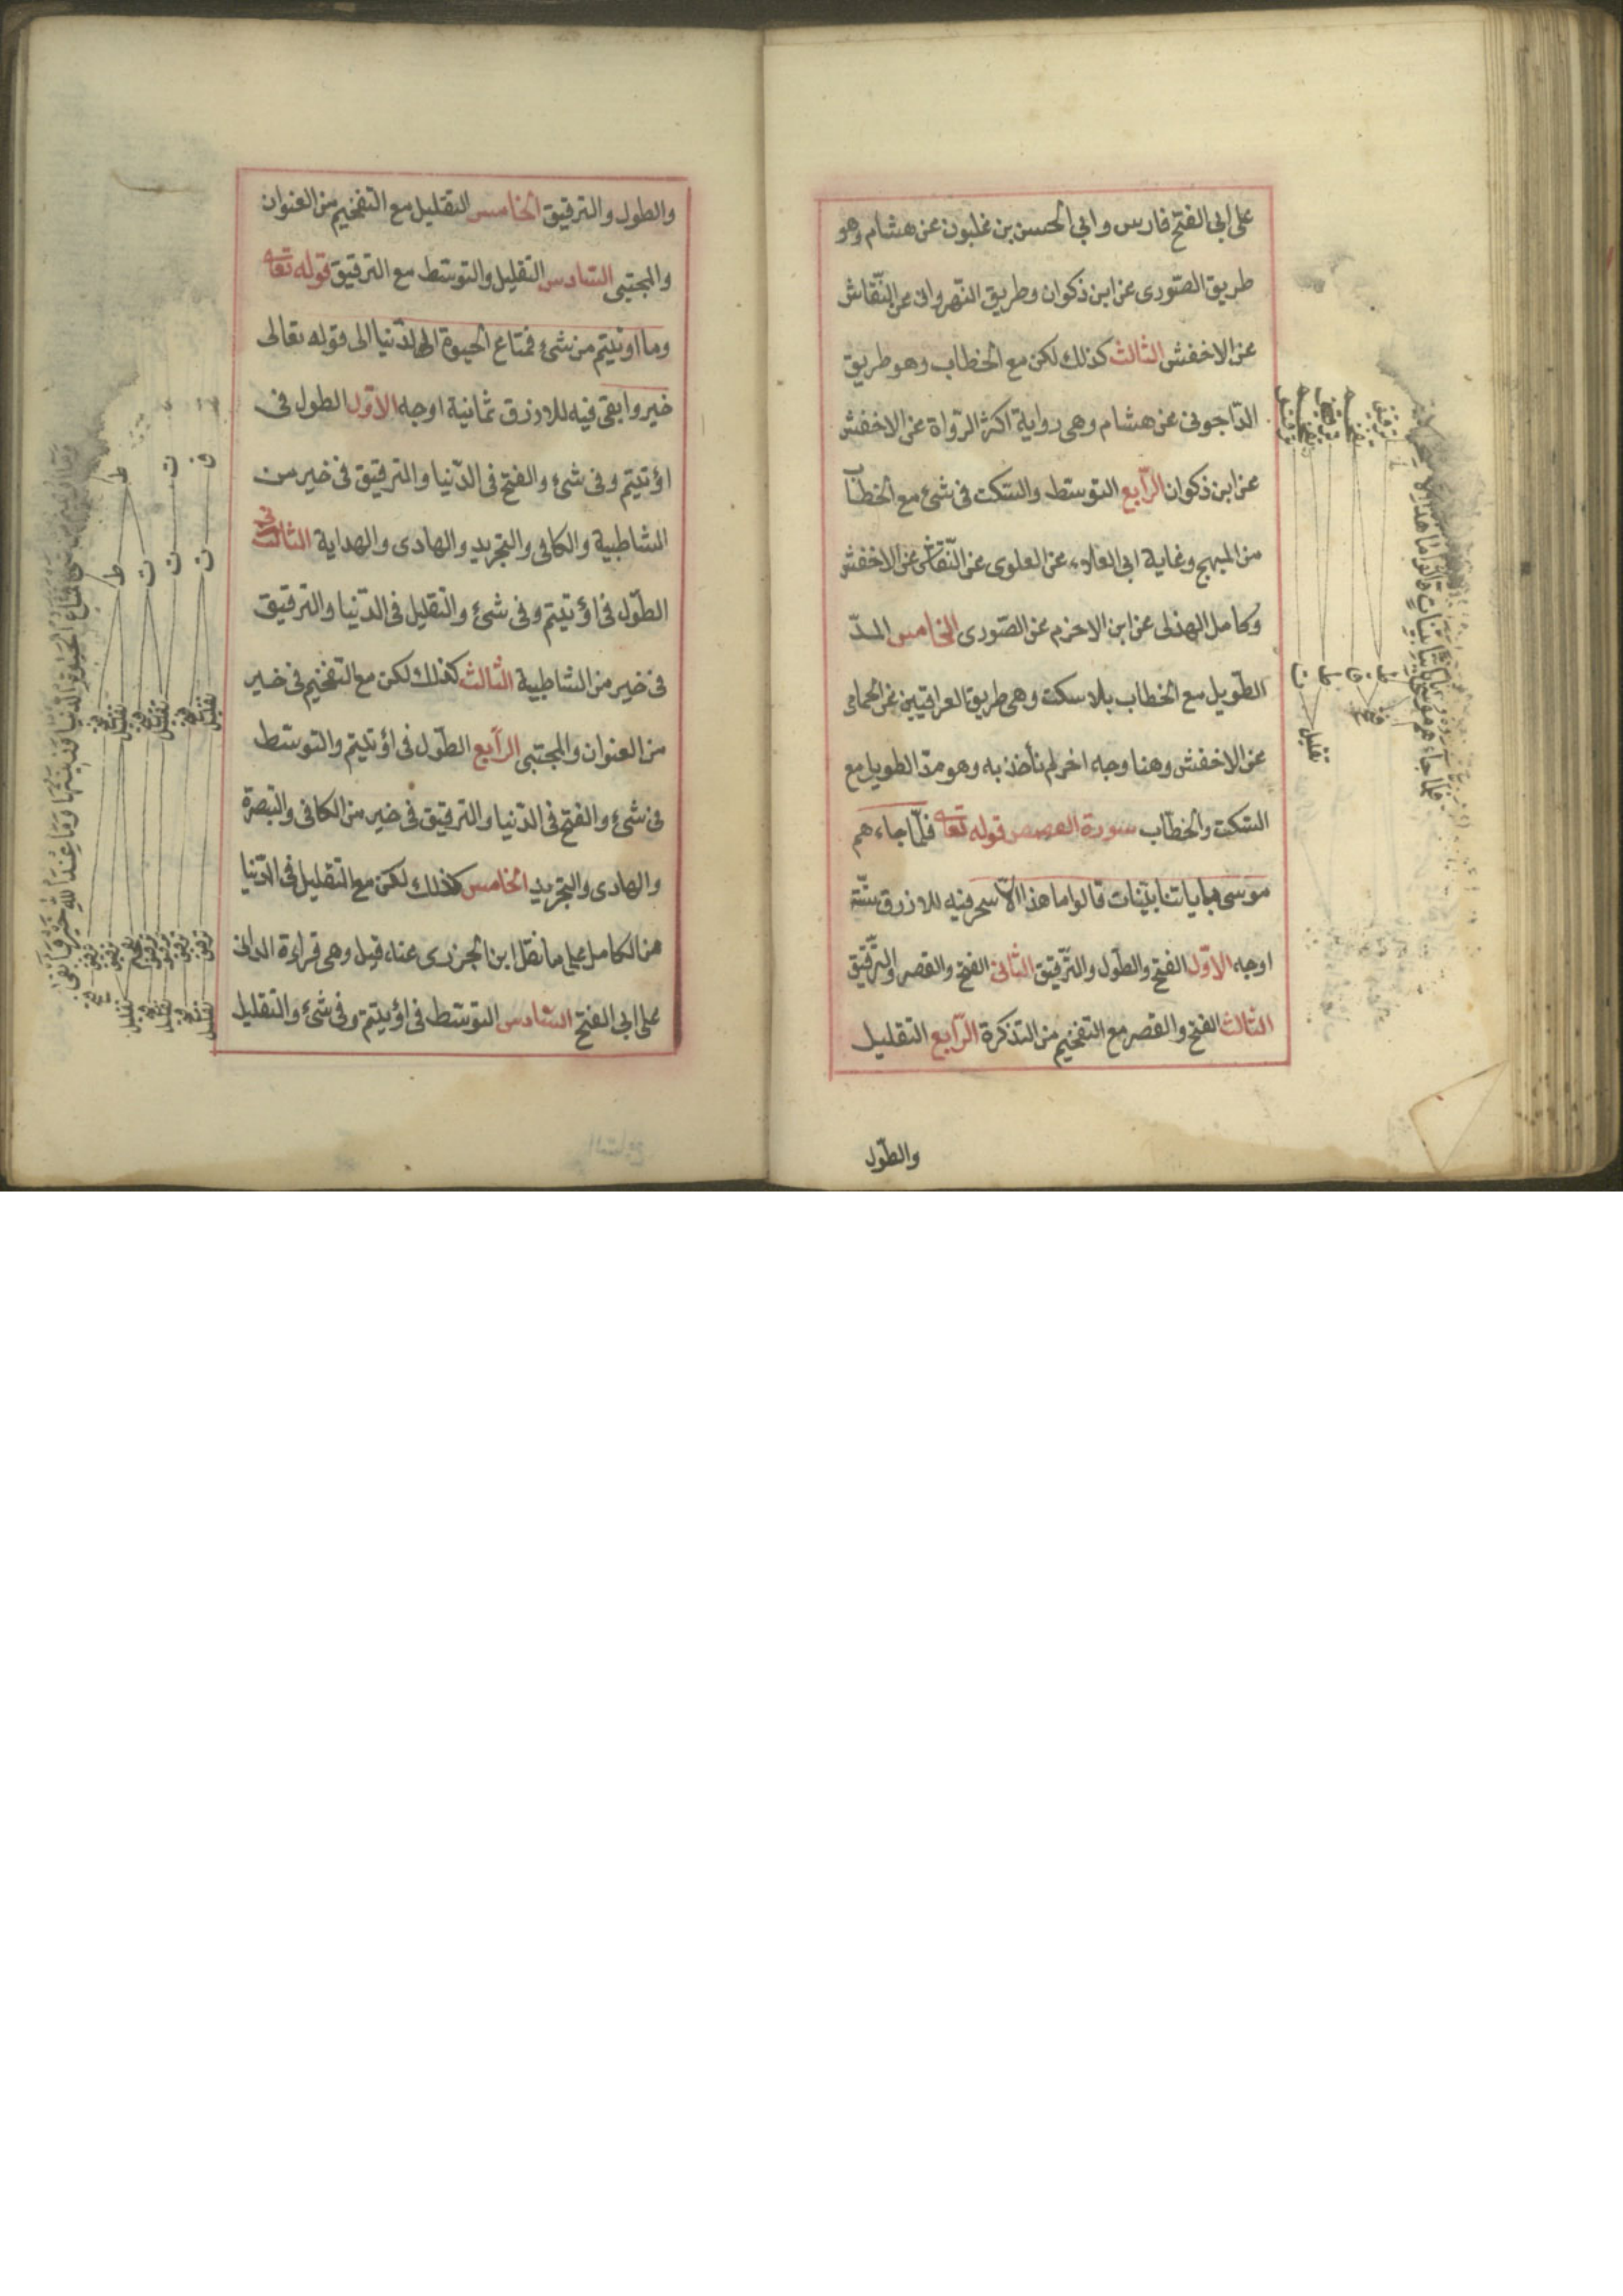 على ابى الفتح فارس وابى الحسن بن غلبون عن هشام وهو
طريق الصّورى عن ابن ذكوان وطريق النّهروانى عن النّقاش
عن الاخفش الثالث كذلك لكن مع الخطاب وهو طريق
الدّاجونى عن هشام وهى رواية اكثر الرّواة عن الاخفش
عن ابن ذكوان الرّابع التوسّط والسّكت فى شئ مع الخطاب
من المبهج وغاية ابى العلاء عن العلوى عن النّقاش عن الاخفش
وكامل الهذلى عن ابن الاخرم عن الصّورى الخامس المدّ
الطّويل مع الخطاب بلا سكت وهى طريق العراقيين عن الحمامى
عن الاخفش وهنا وجه اخر لم نأخذ به وهو مدّ الطويل مع
السّكت والخطاب سورة القصص قوله تعالى فلمّا جاءهم
موسى باياتنا بيّنات قالوا ما هذا الّا سحر فيه للازرق ستّة
اوجه الاوّل الفتح والطّول والتّرقيق الثّانى الفتح والقصر والتّرقيق
الثالث الفتح والقصر مع التفخيم من التذكرة الرّابع التقليل
والطّول
والطول والترقيق الخامس التقليل مع التفخيم من العنوان
والمجتبى السّادس التقليل والتوسّط مع الترقيق قوله تعالى
وما اوتيتم من شئ فمتاع الحيوة الدّنيا الى قوله تعالى
خير وابقى فيه للازرق ثمانية اوجه الاوّل الطول فى
اوتيتم وفى شئ والفتح فى الدّنيا والترقيق فى خير من
الشاطبية والكافى والتجريد والهادى والهداية الثانى
الطّول فى اوتيتم وفى شئ والتقليل فى الدّنيا والترقيق
فى خير من الشاطبية الثالث كذلك لكن مع التفخيم فى خير
من العنوان والمجتبى الرّابع الطّول فى اوتيتم والتوسّط
فى شئ والفتح فى الدّنيا والترقيق فى خير من الكافى والتبصرة
والهادى والتجريد الخامس كذلك لكن مع التقليل فى الدّنيا
من الكامل على ما نقل ابن الجزرى عنه قيل وهى قراءة الدانى
على ابى الفتح السّادس التوسّط فى اوتيتم وفى شئ والتقليل